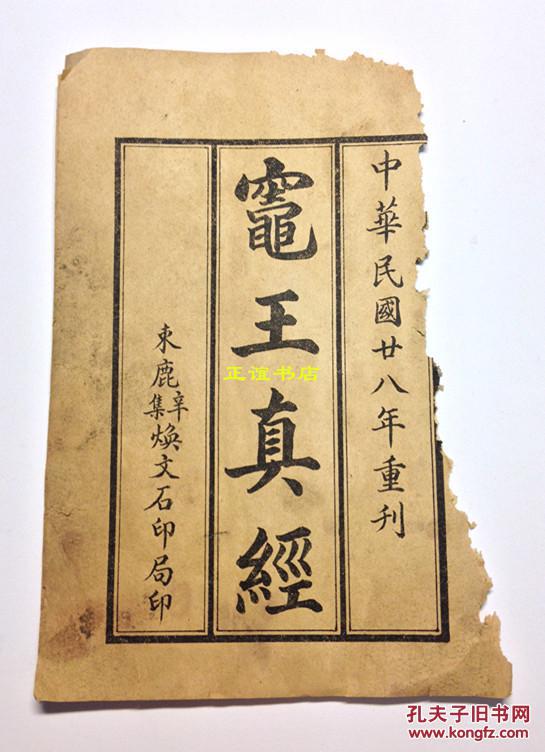 中華民國廿八年重刊
竈王真經
束鹿辛集煥文石印局印
正谊书店
孔夫子旧书网
www.kongfz.com